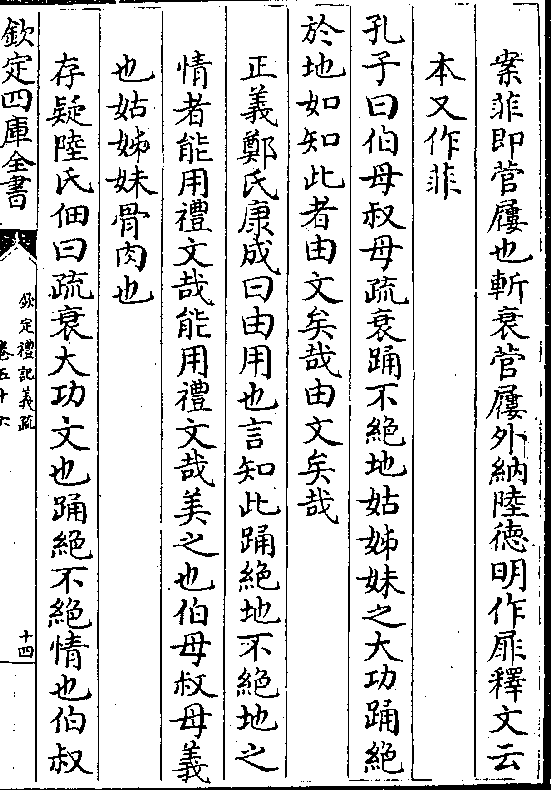 案菲即菅屨也斬衰菅屨外納陸德明作屝釋文云
本又作菲
孔子曰伯母叔母疏衰踊不絶地姑姊妹之大功踊絶
於地如知此者由文矣哉由文矣哉
正義鄭氏康成曰由用也言知此踊絶地不絶地之
情者能用禮文哉能用禮文哉美之也伯母叔母義
也姑姊妹骨肉也
存疑陸氏佃曰疏衰大功文也踊絶不絶情也伯叔
欽定四庫全書
欽定禮記義疏
卷五十六
十四